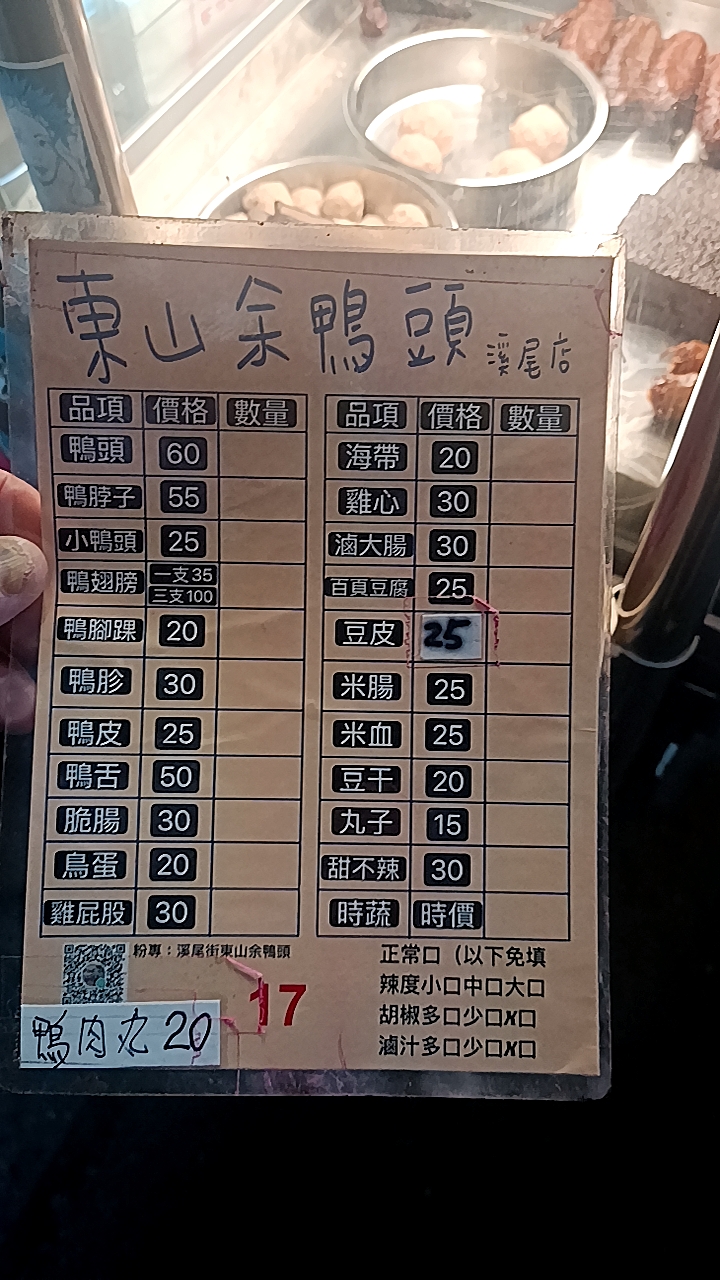 東山余鴨頭 溪尾店
品項 價格 數量
鴨頭 60
鴨脖子 55
小鴨頭 25
鴨翅膀 一支35
三支100
鴨腳踝 20
鴨胗 30
鴨皮 25
鴨舌 50
脆腸 30
鳥蛋 20
雞屁股 30
品項 價格 數量
海帶 20
雞心 30
滷大腸 30
百頁豆腐 25
豆皮 25
米腸 25
米血 25
豆干 20
丸子 15
甜不辣 30
時蔬 時價
粉專：溪尾街東山余鴨頭
17
鴨肉丸 20
正常口（以下免填
辣度小口中口大口
胡椒多口少口X口
滷汁多口少口X口